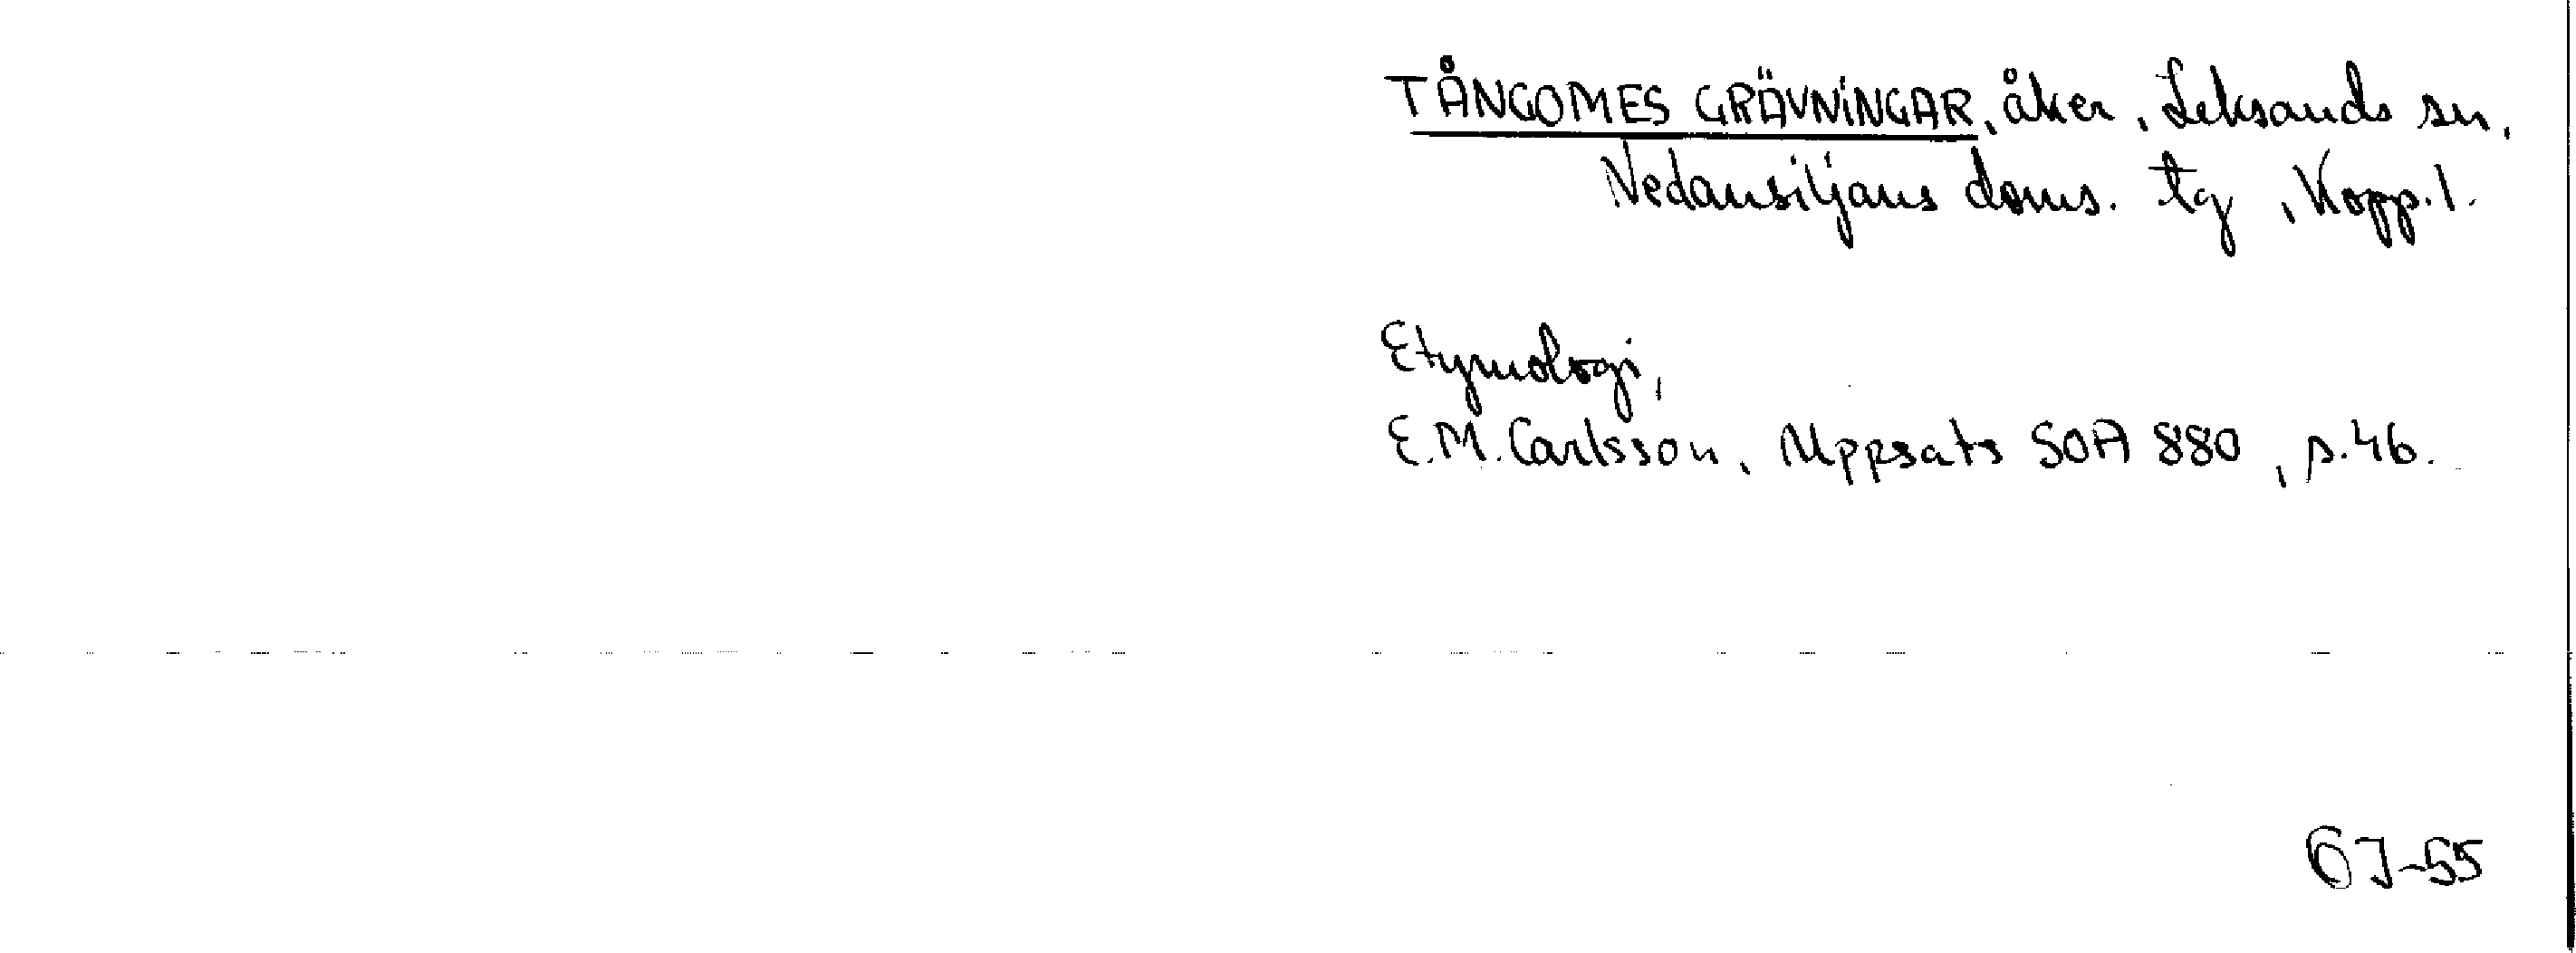 TÅNGOMES GRÄVNINGAR, åker, Leksands sn,
Nedansiljans doms. tg, Kopp. l.
Etymologi,
E.M. Carlsson, Uppsats SOA 880, s. 46.